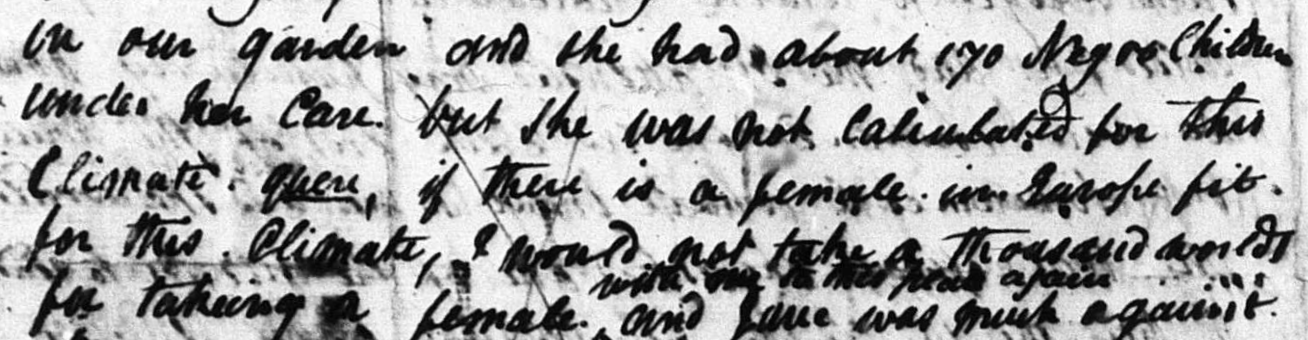 in our garden and she had about 170 Negro Children
under her Care. but she was not Calculated for this
Climate. quere, if there is a female in Europe fit.
for this Climate, I would not take a thousand worlds
with me to this again
for takeing a female. and Jane was much against.